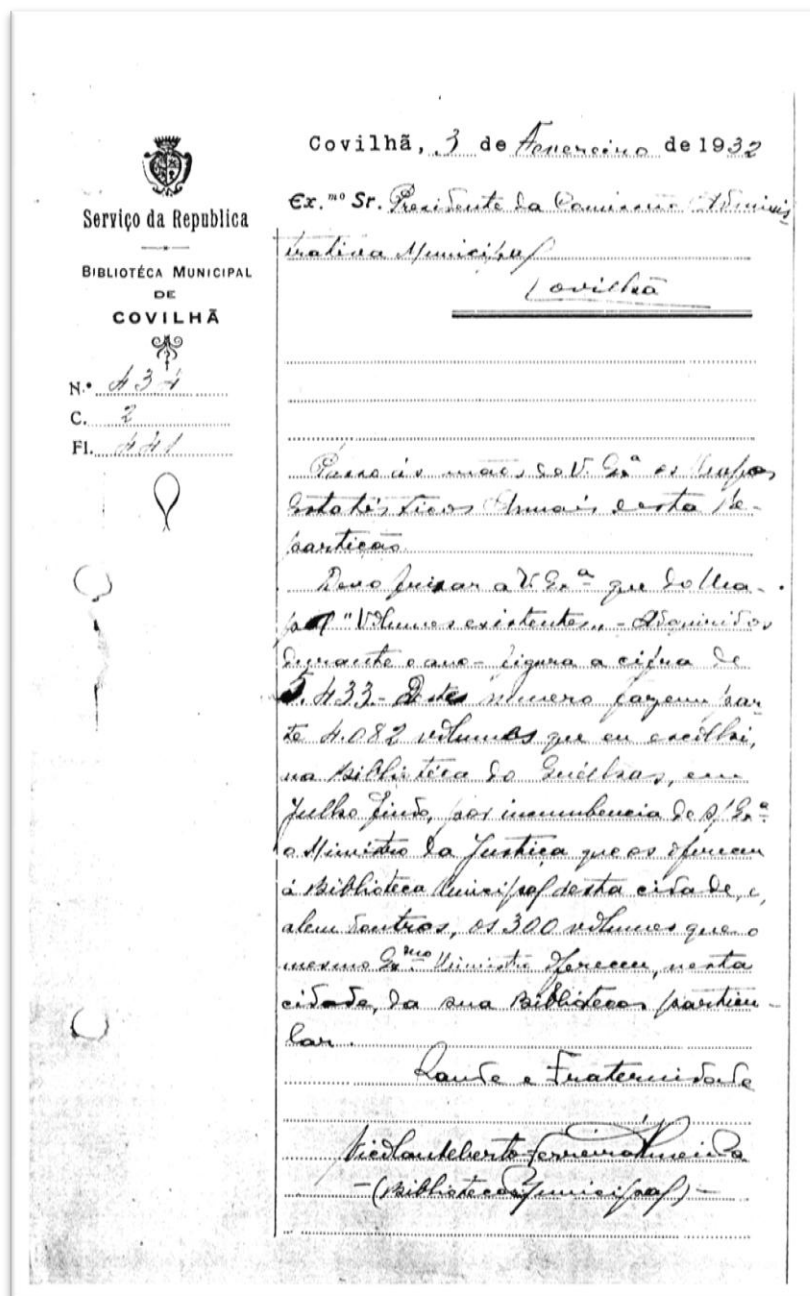 Serviço da Republica
BIBLIOTÉCA MUNICIPAL
DE
COVILHÃ
N.º 434
C. 2
Fl. 441
Covilhã, 3 de Fevereiro de 1932
Ex.mo Sr. Presidente da Comissão Adminis-
trativa Municipal
Covilhã
Passo ás mãos de V. Exª os Mapas
Estatisticos Anuais desta Re-
partição.
Devo frisar a V. Exª que do Ma-
pa "Volumes existentes" - Adquiridos
durante o ano - figura a cifra de
5.433 - Deste número fazem par-
te 4.082 volumes que eu escolhi,
na Bibliotéca do Quelhas, em
Julho findo, por incumbencia de S. Exª
o Ministro da Justiça que os ofereceu
á Biblioteca Municipal desta cidade, e,
alem doutros, os 300 volumes que o
mesmo Exmo Ministro ofereceu, nesta
cidade, da sua Biblioteca particu-
lar.
Saude e Fraternidade
Ferreira Almeida